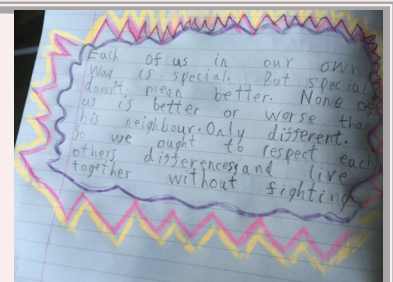 Each of us in our own
way is special. But special
doesn't mean better. None of
us is better or worse than
his neighbour. Only different.
So we ought to respect each
others differences, and live
together without fighting